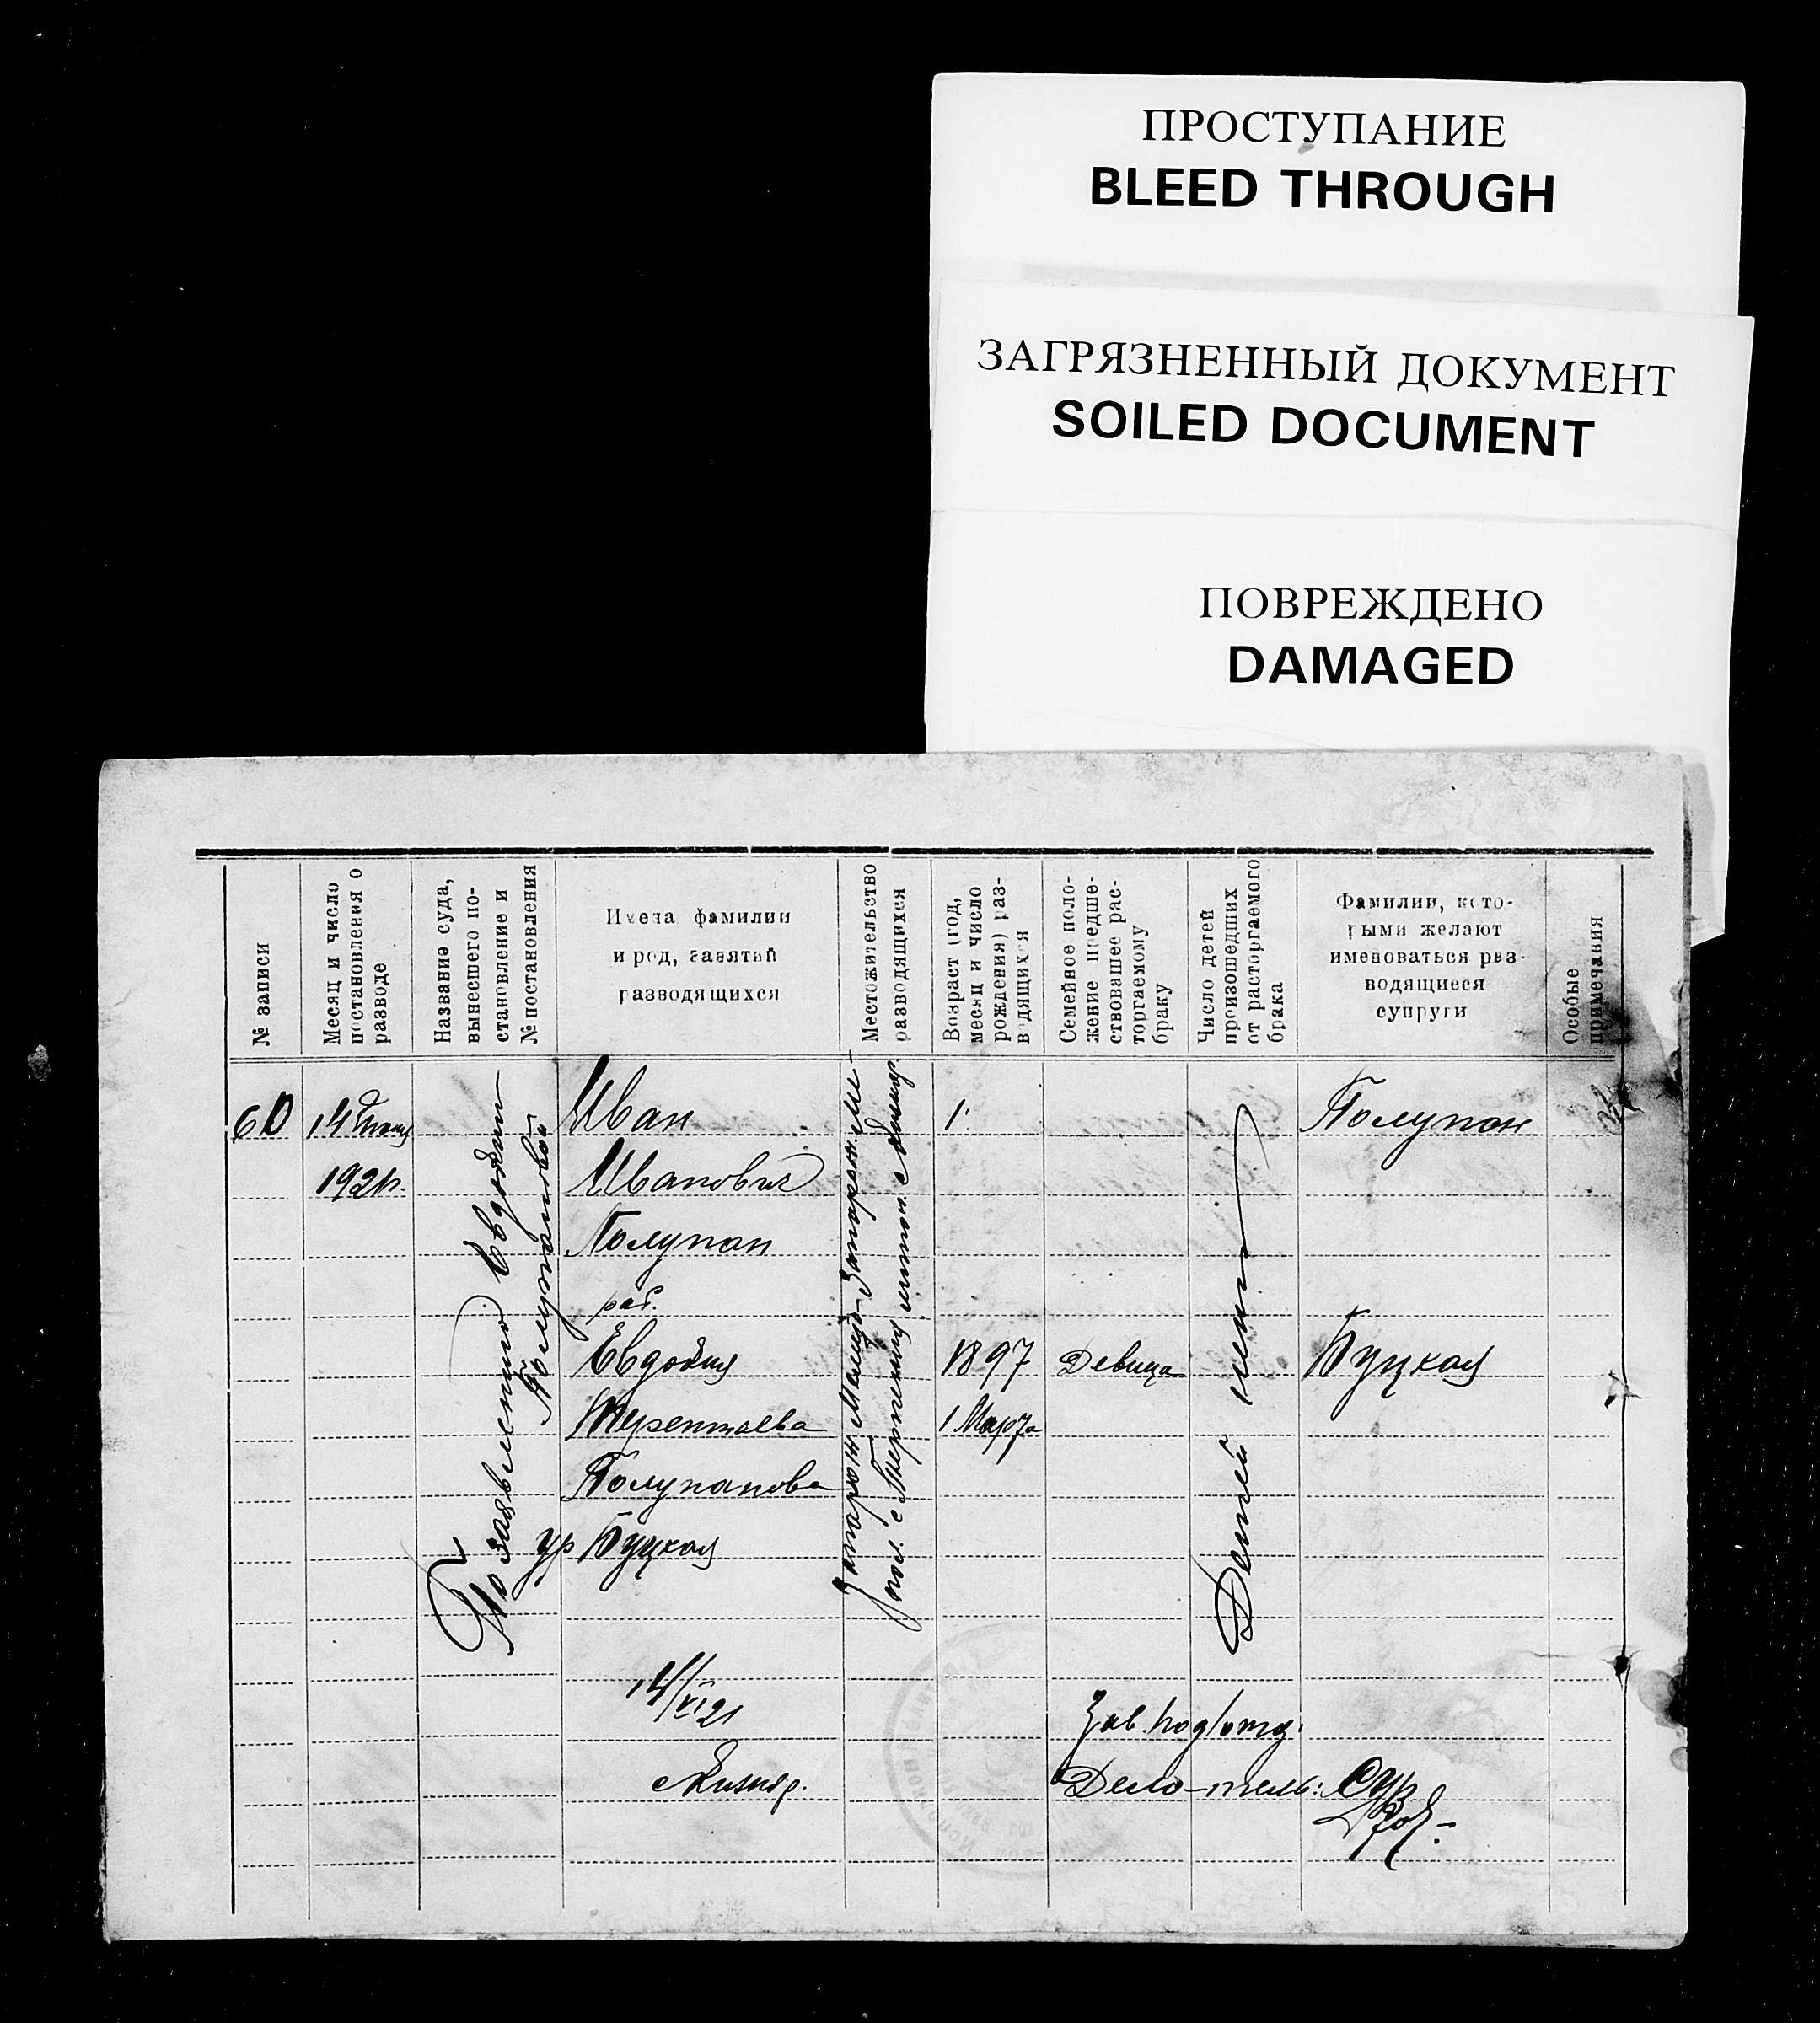 ПРОСТУПАНИЕ
BLEED THROUGH
ЗАГРЯЗНЕННЫЙ ДОКУМЕНТ
SOILED DOCUMENT
ПОВРЕЖДЕНО
DAMAGED
№ записи
Месяц и число
постановления о
разводе
Название суда,
вынесшего по-
становление и
№ постановления
Имена фамилии
и род, занятий
разводящихся
Местожительство
разводящихся
Возраст (год,
месяц и число
рождения) раз-
водящихся
Семейное поло-
жение предше-
ствовавшее рас-
торгаемому
браку
Число детей
произошедших
от расторгаемого
брака
Фамилии, кото-
рыми желают
именоваться раз-
водящиеся
супруги
Особые
примечания
60
14 Июня
1921г.
По заявлению Евдокии
Полупановой
Иван
Иванович
Полупан
раб.
Евдокия
Полупанова
ур Буцкая
14/VI 21
1897
1 Марта
Девица
Детей нет
Полупан
Буцкая
Зав. подотд.
Дело-тель: